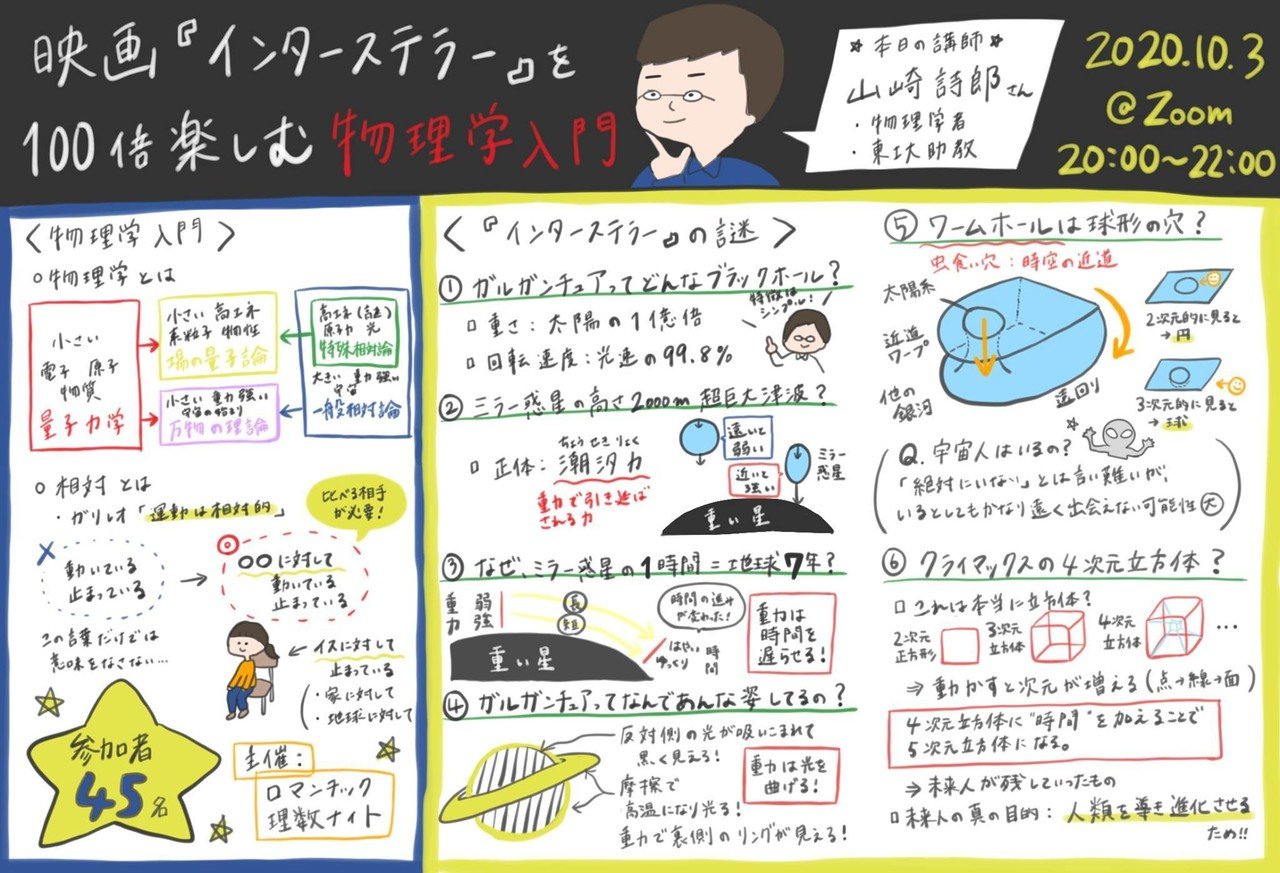 映画『インターステラー』を
100倍楽しむ物理学入門
☆本日の講師☆
山崎詩郎さん
・物理学者
・東工大助教
2020.10.3
@Zoom
20:00〜22:00
〈物理学入門〉
○物理学とは
小さい
電子 原子
物質
量子力学
小さい 高エネ
素粒子 物性
場の量子論
小さい 重力強い
宇宙の始まり
万物の理論
高エネ(速)
原子力 光
特殊相対論
大きい 重力強い
宇宙
一般相対論
○相対とは
・ガリレオ「運動は相対的」
比べる相手
が必要!
動いている
止まっている
→
○○に対して
動いている
止まっている
この言葉だけでは
意味をなさない…
イスに対して
止まっている
・家に対して
・地球に対して
参加者
45名
主催:
ロマンチック
理数ナイト
〈『インターステラー』の謎〉
①ガルガンチュアってどんなブラックホール?
□重さ:太陽の1億倍
□回転速度:光速の99.8%
特徴は
シンプル!
②ミラー惑星の高さ2000m超巨大津波?
□正体:潮汐力
ちょうせきりょく
重力で引き延ば
される力
遠いと
弱い
近いと
強い
ミラー
惑星
重い星
③なぜ、ミラー惑星の1時間=地球7年?
重力
弱
強
長
短
時間の進みが
変わった!
はやい
ゆっくり
時間
重い星
重力は
時間を
遅らせる!
④ガルガンチュアってなんであんな姿してるの?
反対側の光が吸いこまれて
黒く見える!
摩擦で
高温になり光る!
重力で裏側のリングが見える!
重力は光を
曲げる!
⑤ワームホールは球形の穴?
虫食い穴:時空の近道
太陽系
近道
ワープ
他の
銀河
遠回り
2次元的に見ると
→円
3次元的に見ると
→球
Q.宇宙人はいるの?
「絶対にいない」とは言い難いが、
いるとしてもかなり遠く出会えない可能性大
⑥クライマックスの4次元立方体?
□これは本当に立方体?
2次元
正方形
3次元
立方体
4次元
立方体
…
⇒動かすと次元が増える(点→線→面)
4次元立方体に"時間"を加えることで
5次元立方体になる。
⇒未来人が残していったもの
□未来人の真の目的:人類を導き進化させる
ため!!